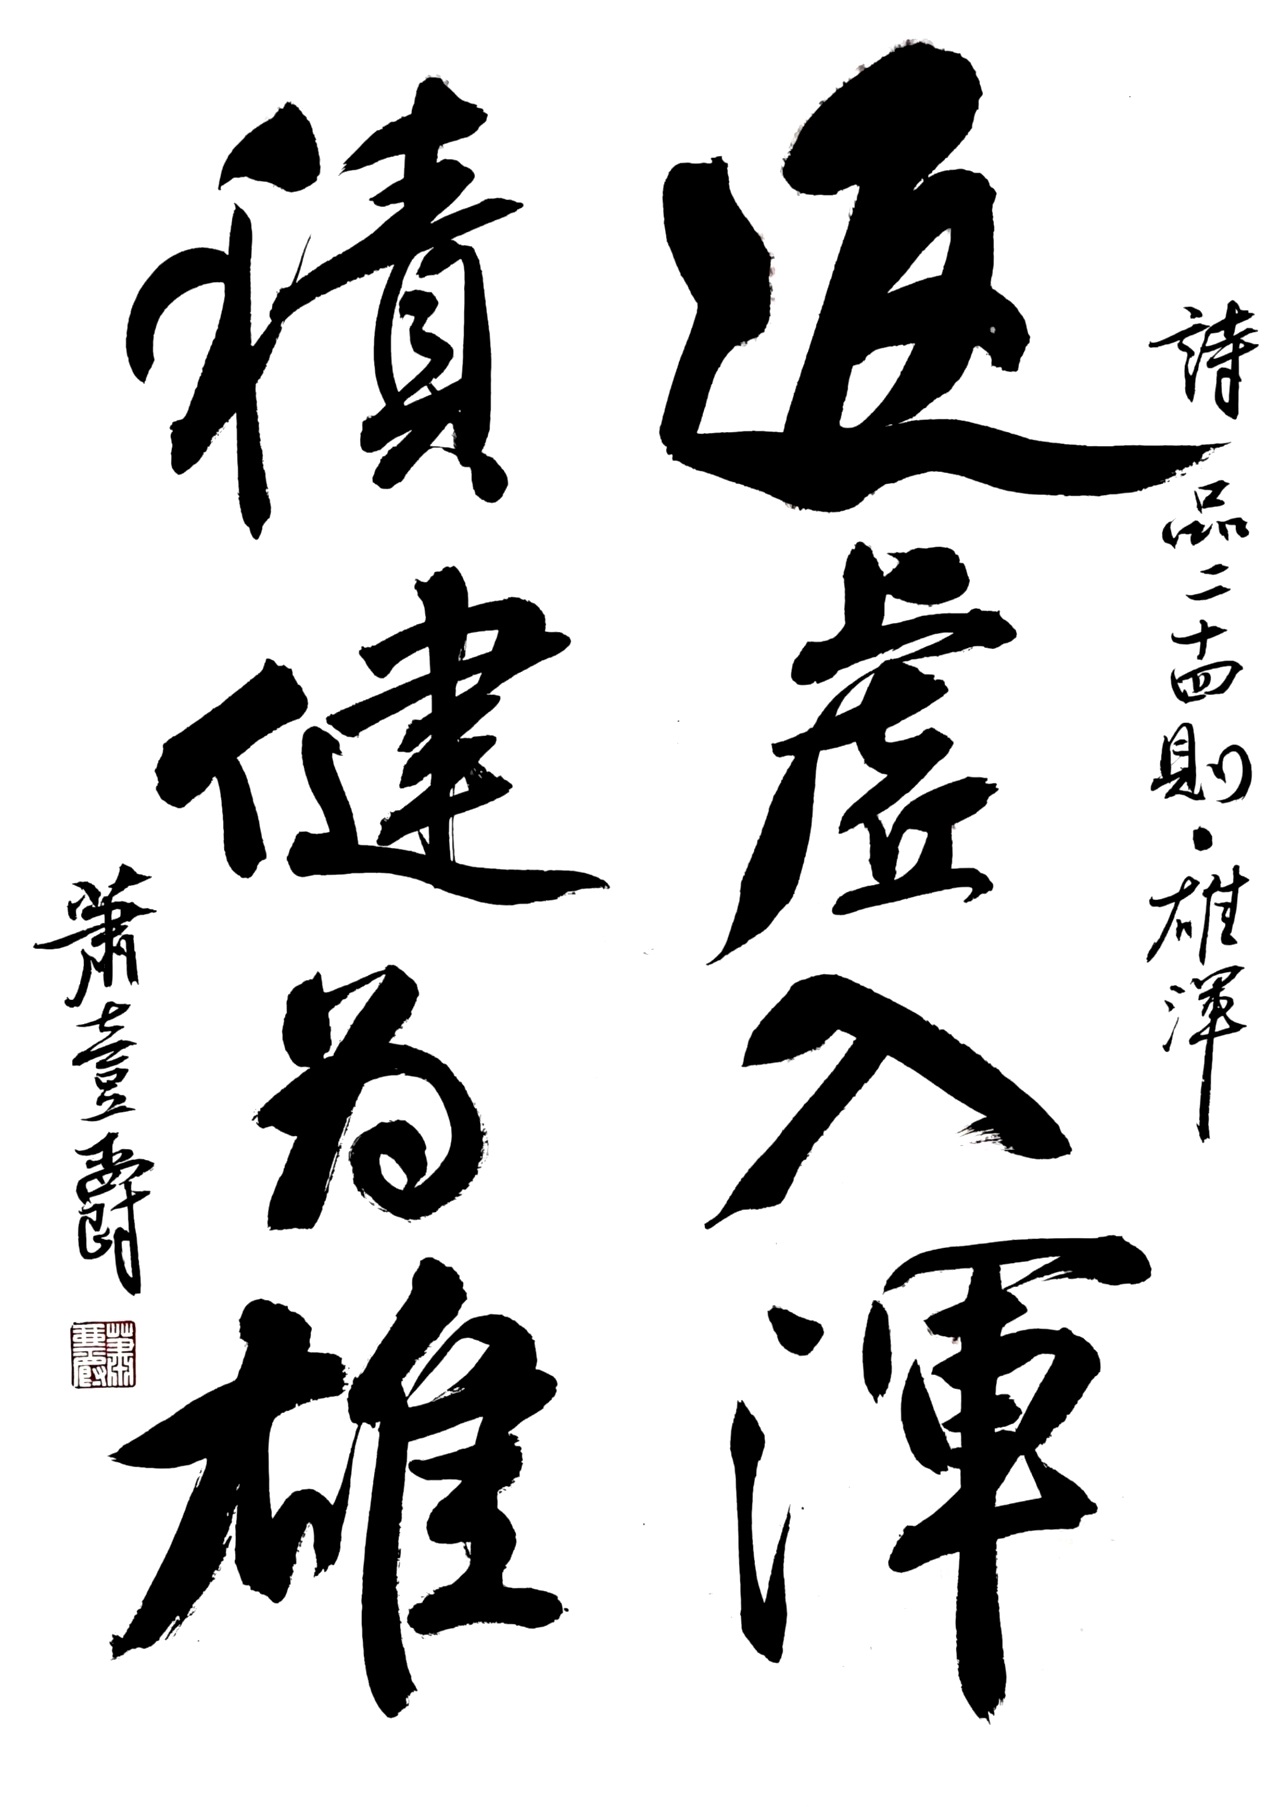 詩品二十四則·雄渾
返虛入渾
積健为雄
蕭壹爵